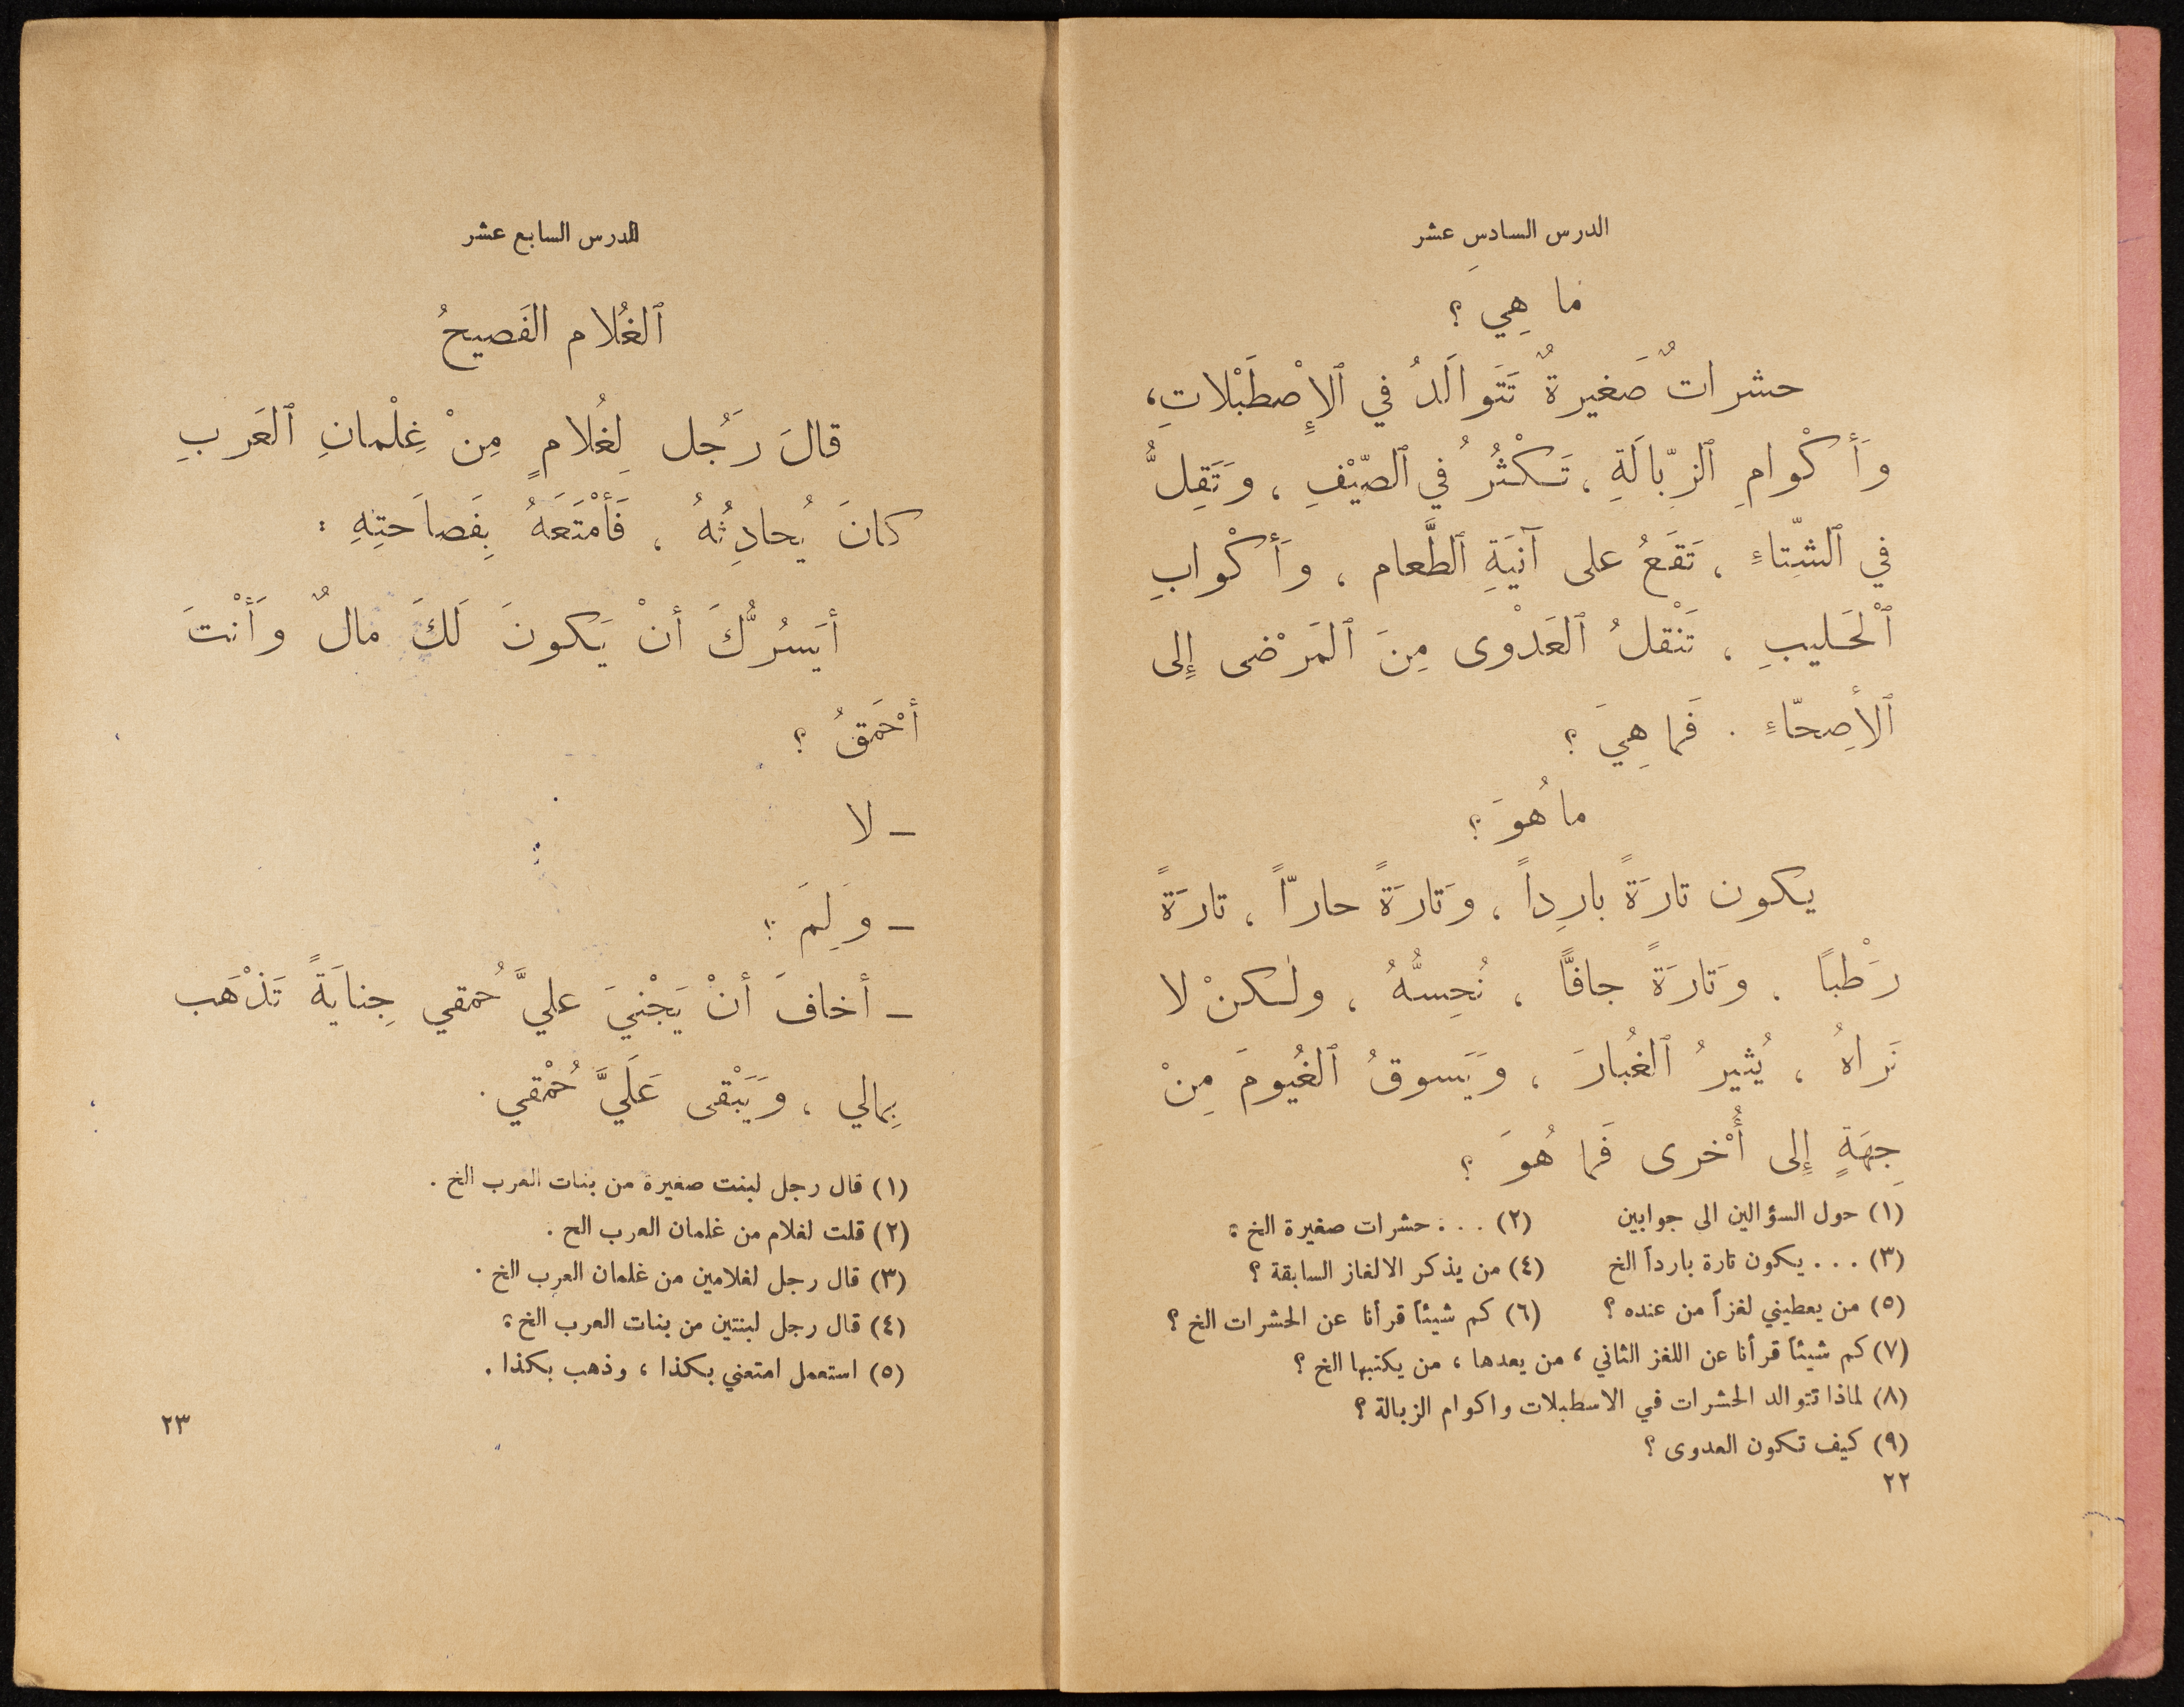 الدرس السادس عشر
ما هِي ؟
حشراتٌ صَغيرةٌ تَتَوالَدُ في ٱلإِصْطَبْلاتِ،
وأَكْوامِ ٱلزِّبالَةِ ، تَكْثُرُ في ٱلصّيْفِ ، وَتَقِلُّ
في ٱلشِّتاءِ ، تَقَعُ على آنيَةِ ٱلطَّعام ، وأَكْوابِ
ٱلْحَليبِ ، تَنْقلُ ٱلعَدْوى مِنَ ٱلمَرْضى إِلى
ٱلأَصِحّاءِ . فَما هِيَ ؟
ما هُوَ ؟
يكون تارَةً بارِداً ، وَتارَةً حارّاً ، تارَةً
رَطْبًا . وَتارَةً جافًّا ، نُحِسُّهُ ، ولٰكنْ لا
نَراهُ ، يُثيرُ ٱلغُبارَ ، وَيَسوقُ ٱلغُيومَ مِنْ
جِهَةٍ إِلى أُخْرى فَما هُوَ ؟
(١) حول السؤالين الى جوابين (٢) . . . حشرات صغيرة الخ ؟
(٣) . . . يكون تارة بارداً الخ (٤) من يذكر الالغاز السابقة ؟
(٥) من يعطيني لغزاً من عنده ؟ (٦) كم شيئاً قرأنا عن الحشرات الخ ؟
(٧) كم شيئاً قرأنا عن اللغز الثاني ، من يعدها ، من يكتبها الخ ؟
(٨) لماذا تتوالد الحشرات في الاسطبلات واكوام الزبالة ؟
(٩) كيف تكون العدوى ؟
٢٢
الدرس السابع عشر
ٱلغُلام الفَصيحُ
قالَ رَجُل لِغُلامٍ مِنْ غِلْمانِ ٱلعَربِ
كانَ يُحادِثُهُ ، فَأَمْتَعَهُ بِفَصاَحتِهِ :
أيَسُرُّكَ أنْ يَكونَ لَكَ مالٌ وَأَنْتَ
أحْمَقُ ؟
— لا
— وَلِمَ ؟
— أخافَ أنْ يَجْنيَ عليَّ حُمقي جِنايَةً تَذْهَب
بِمالي ، وَيَبْقى عَلَيَّ حُمْقي .
(١) قال رجل لبنت صغيرة من بنات العرب الخ .
(٢) قلت لغلام من غلمان العرب الح .
(٣) قال رجل لغلامين من غلمان العرب الخ .
(٤) قال رجل لبنتين من بنات العرب الخ ؟
(٥) استعمل امتعني بكذا ، وذهب بكذا .
٢٣